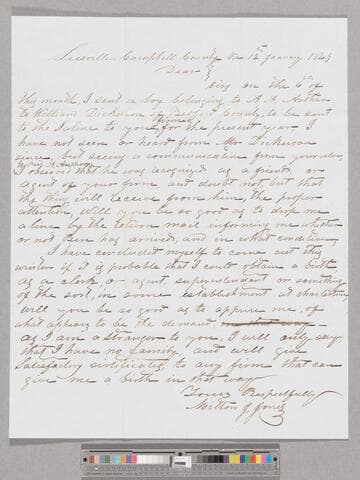 Leesville Campbell County Va 12th January 1849
Dear Sirs
Sirs on the 6th of
this month, I sent a boy belonging to A. A. Arthur
to William Dickerson of Bedford County, to be sent
to the Saline to your firm for the present year I
have not seen or heard from Mr Dickerson
since, but seeing a communication from yourselves
I observed that he was recognized as a friend or
agent of your firm and doubt not, but that
the thing will receive from him, the proper
attention, will you be so good as to drop me
a line by the return mail informing me whether
or not Ben has arrived, and in what condition,
I have concluded myself to come out this
winter if it is probable that I could obtain a birth
as a clerk or agent, superintendant or something
of the sort, in some establishment at charleston,
will you be so good as to apprise me, of
what appears to be the demand in that way
as I am a stranger to you, I will only say
that I have no family and will give
Satisfactory certificates to any firm that can
give me a birth in that way
Yours Respectfully
Milton J Jones